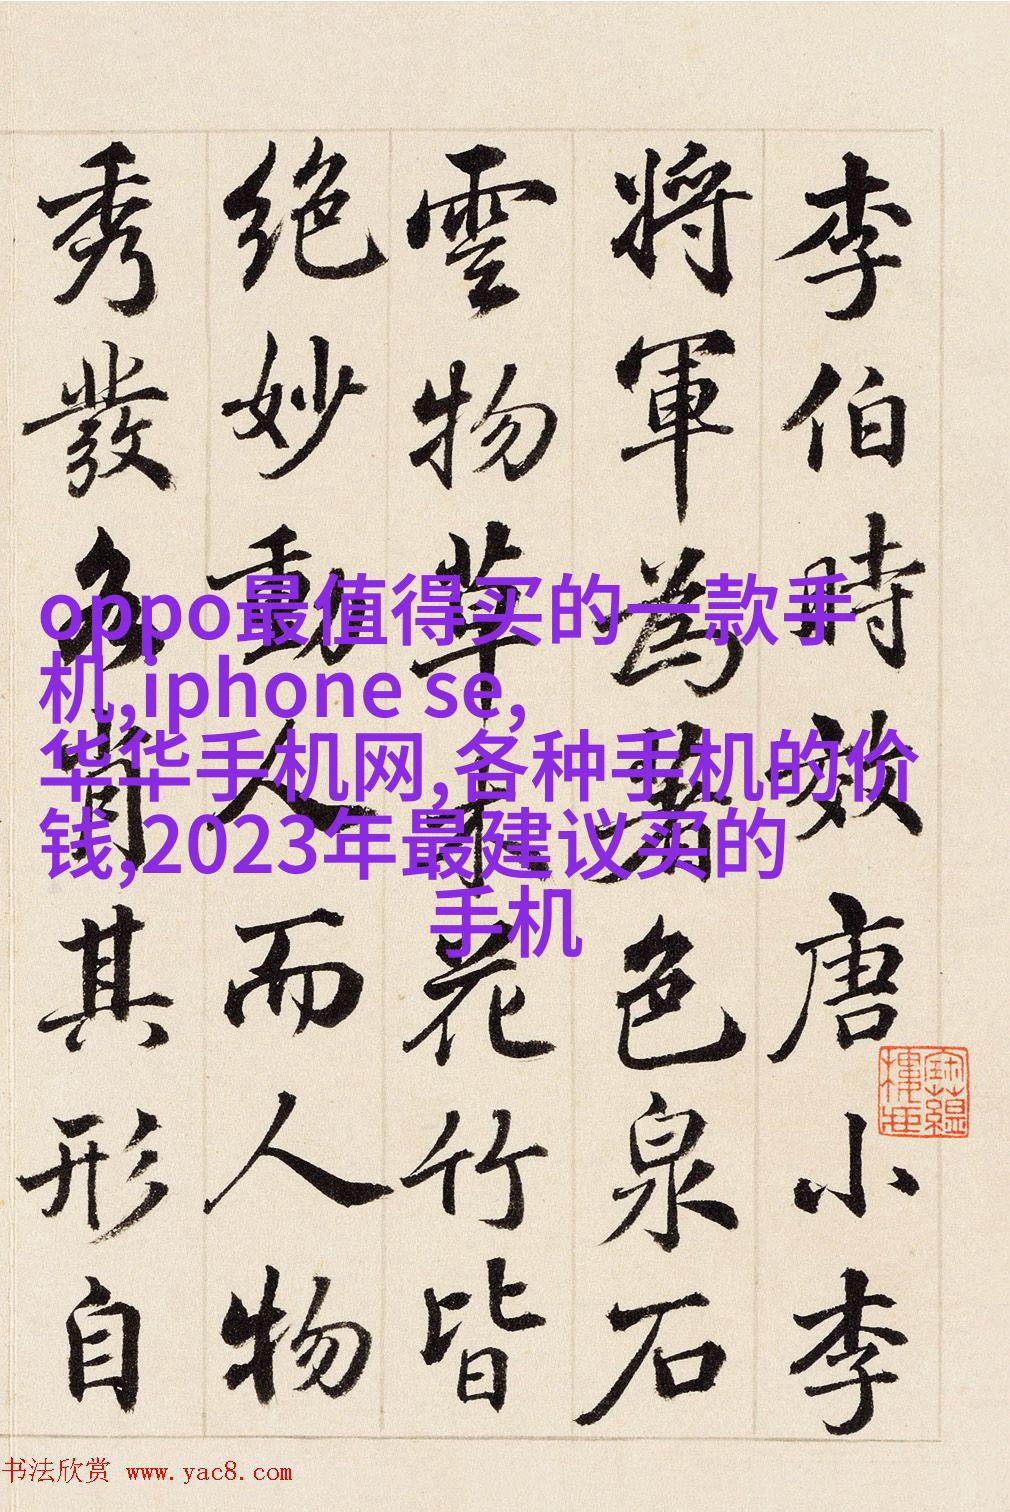 李伯時效唐小李
將軍為著色泉石
雲物草木花竹皆
絕妙動人而人物
秀發各肖其形自
oppo最值得买的一款手
机,iphone se,
华华手机网,各种手机的价
钱,2023年最建议买的
手机
书法欣赏 www.yac8.com